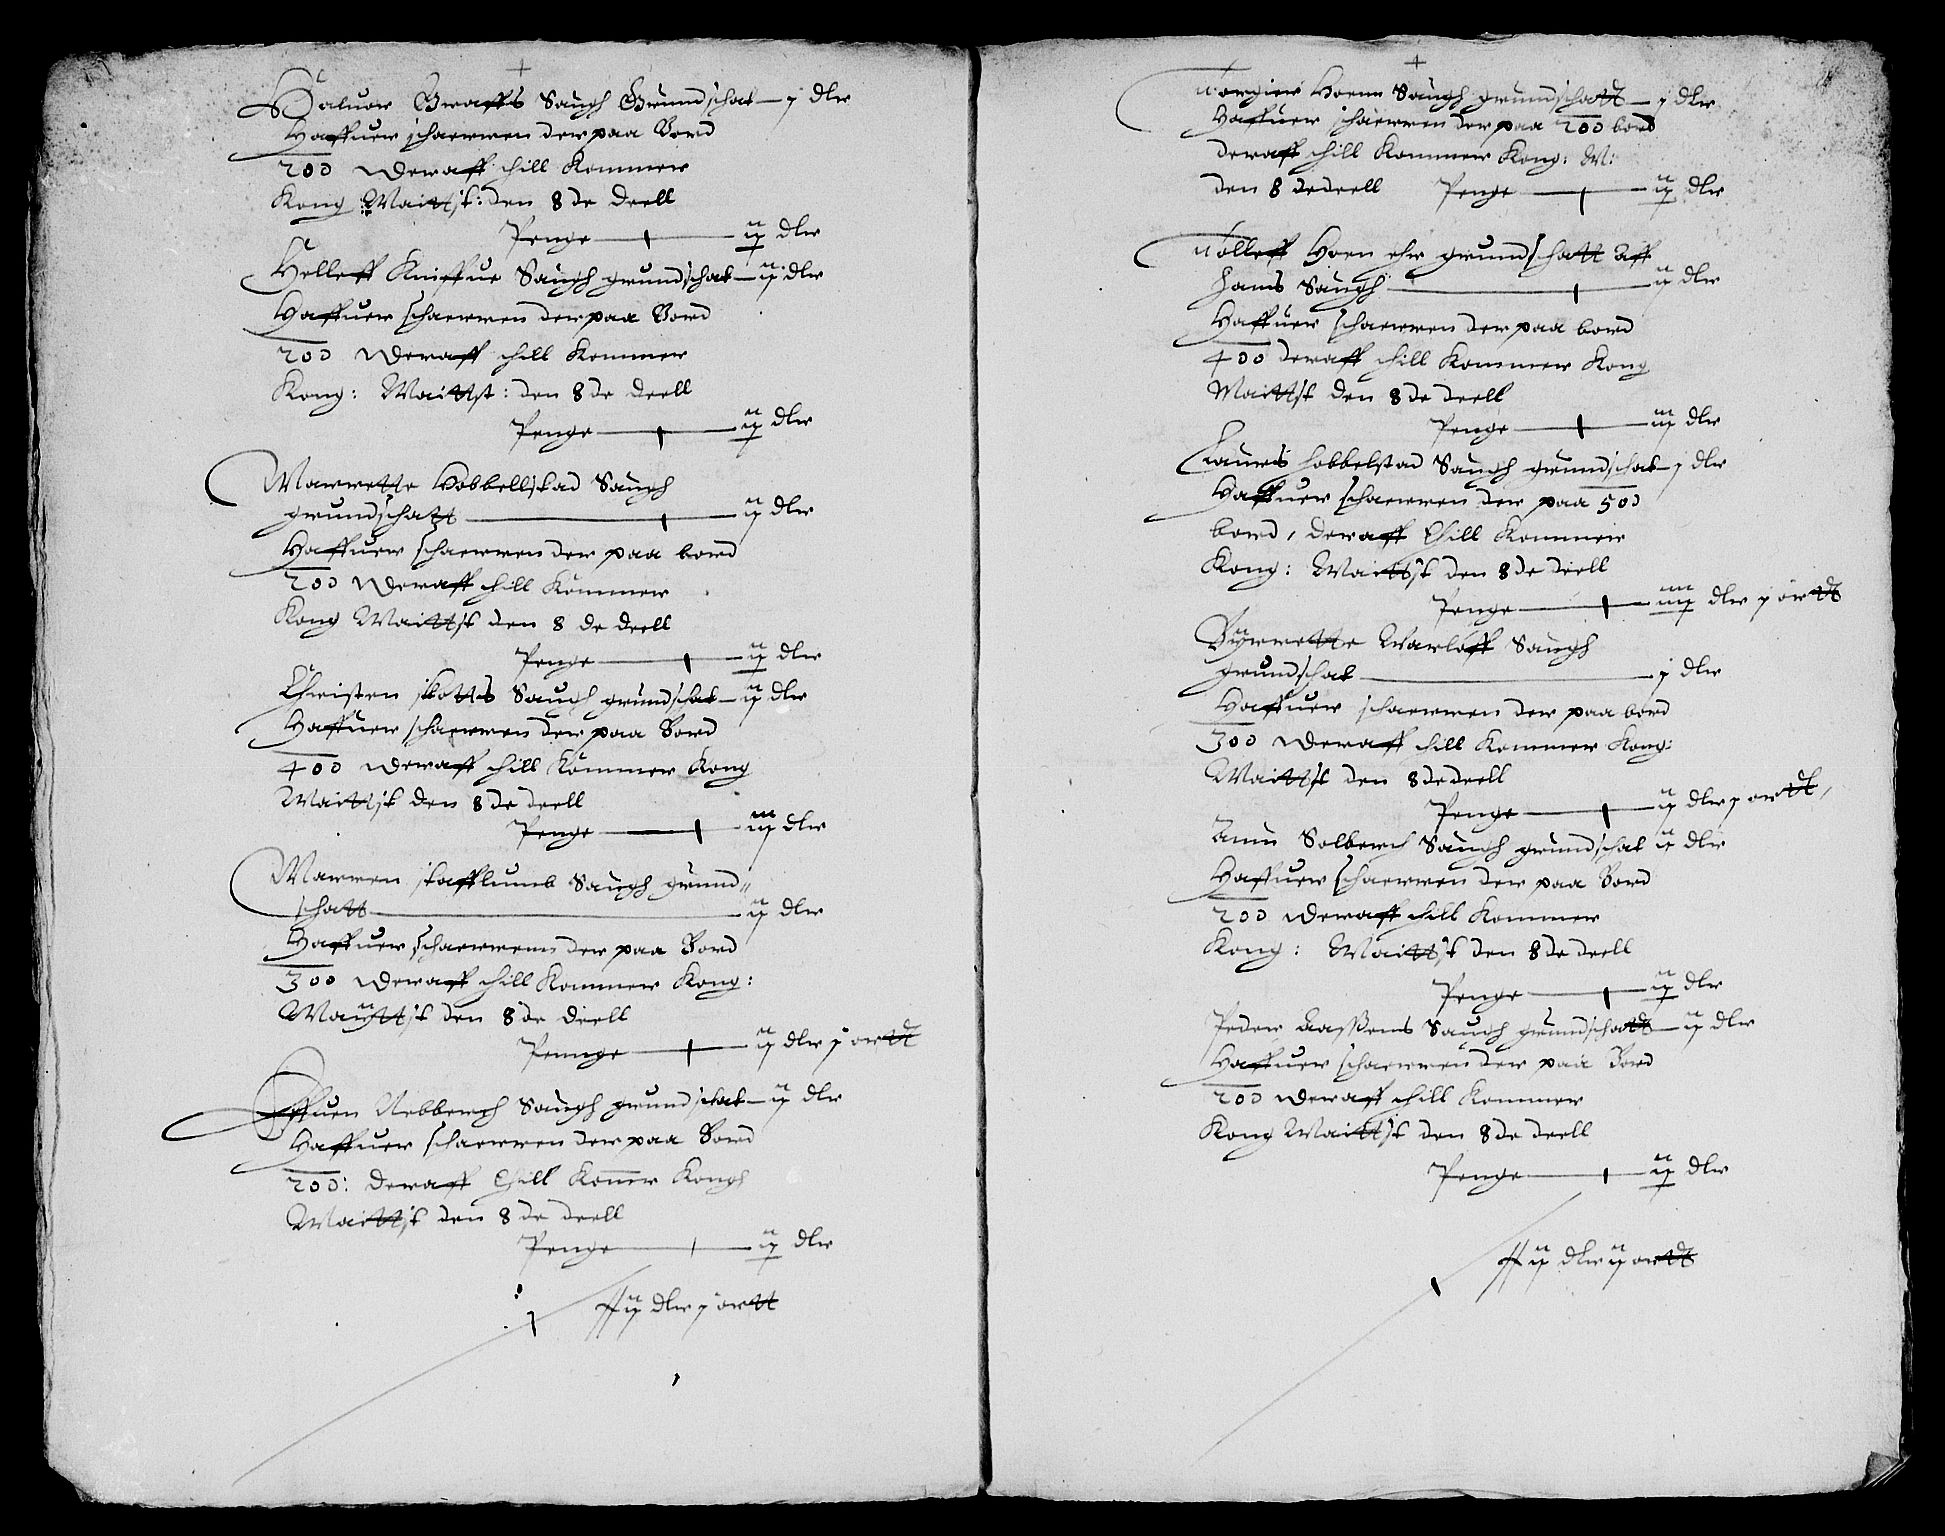 Haluor Graffs Saugh Grundschat — j dlr
Haffuer schaerren der paa Bord
200 Deraff thill Kommer
Kong Maittst: den 8 de deell
Penge — ij dlr
Helleff Kniffue Saugh grundschat — ij dlr
Haffuer schaerren der paa Bord
200 Deraff thill Kommer
Kong: Maittst: den 8 de deell
Penge — ij dlr
Marrette Hobbellstad Saugh
grundschatt — ij dlr
Haffuer schaerren der paa bord
200 Deraff thill Kommer
Kong Maittst den 8 de deell
Penge — ij dlr
Christen skotts Saugh grundschat — ij dlr
Haffuer schaerren der paa Bord
400 Deraff thill Kommer Kong
Maittst den 8 de deell
Penge — iij dlr
Marren stafflumb Saugh grund=
schatt — ij dlr
Haffuer schaerrenn der paa Bord
300 Deraff thill Kommer Kong:
Maittst den 8 de deell
Pennge — ij dlr j ortt
Effuen Nebberch Saugh grundschat — ij dlr
Haffuer schaerren der paa Bord
200: deraff thill Komer Kongh
Maittst den 8 de deell
Penge — ij dlr
ij dlr j ortt
Torgier Hoenn Saugh grundschatt — j dlr
Haffuer schaerren der paa 200 bord
deraff thill Kommer Kong: M:
den 8 de deell Penge — ij dlr
Tolleff Hoen ehr grundschatt Aff
hans Saugh — ij dlr
Haffuer schaerren der paa bord
400 deraff thill Kommer Kong
Maittst den 8 de deell
Penge — iij dlr
Laurs hobbelstad Saugh grundschat — j dlr
Haffuer schaerren der paa 500
bord, deraff thill Kommer
Kong: Maittst den 8 de deell
Penge — iiij dlr j ortt
Byrrette Warloff Saugh
grundschat — j dlr
Haffuer schaerren der paa bord
300 Deraff thill Kommer Kong:
Maittst den 8 de deell
Penge — ij dlr j ortt,
Anun Solberch Saugh grundschat ij dlr
Haffuer schaerren der paa Bord
200 Deraff thill Kommer
Kong: Maittst den 8 de deell
Penge — ij dlr
Peder Aassens Saugh grundschatt — ij dlr
Haffuer schaerren der paa Bord
200 Deraff thill Kommer
Kong Maittst den 8 de deell
Penge — ij dlr
ij dlr ij ortt